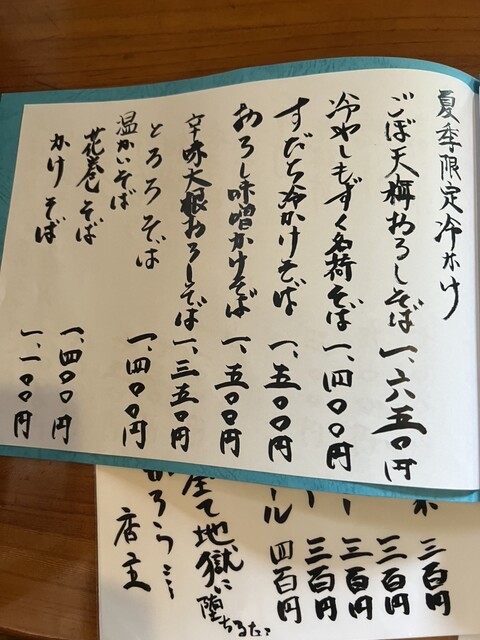 夏季限定冷かけ
ごぼ天梅おろしそば 一、六五〇円
冷やしもずく茗荷そば 一、四〇〇円
すだち冷かけそば 一、五〇〇円
おろし味噌かけそば 一、五〇〇円
辛味大根おろしそば 一、三五〇円
とろろそば 一、四〇〇円
温かいそば
花巻そば 一、四〇〇円
かけそば 一、一〇〇円
三百円
三百円
三百円
三百円
ール 四百円
全て地獄に堕ちるだ
店主